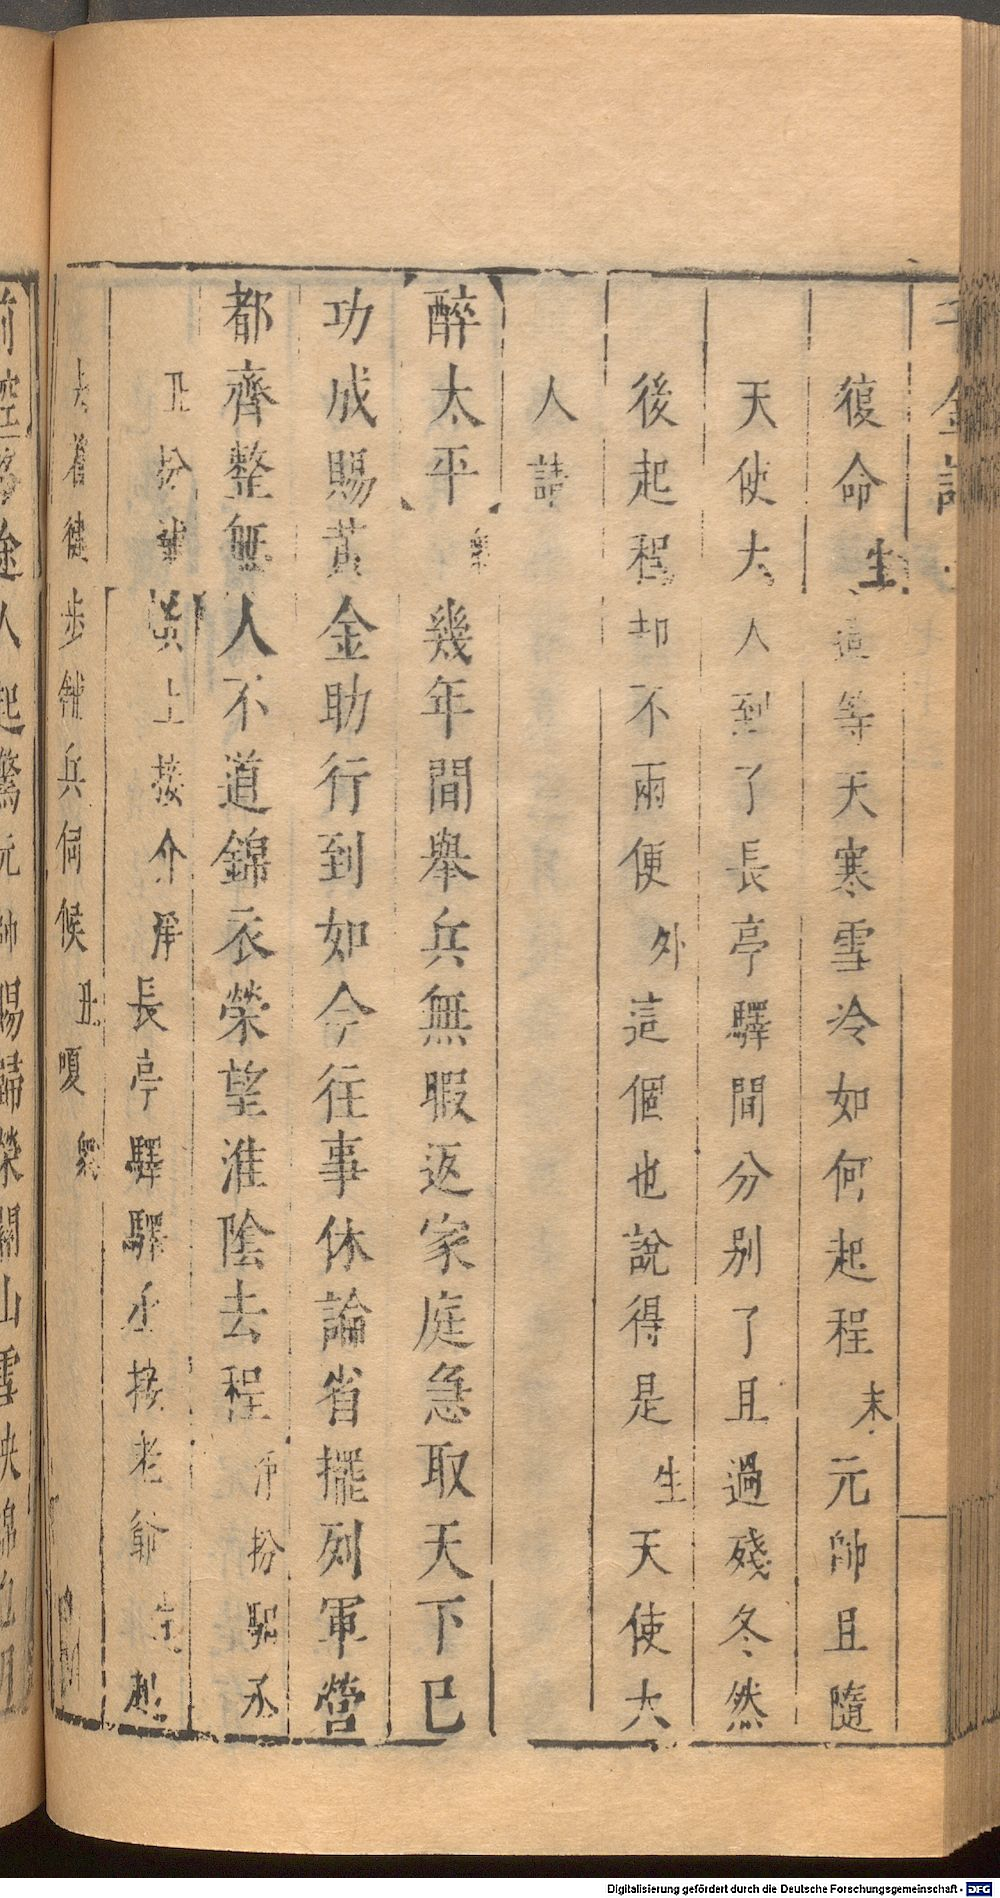 千金記
復命 生 這等天寒雪冷如何起程 末 元帥且隨
天使大人到了長亭驛間分別了且過殘冬然
後起程却不兩便 外 這個也說得是 生 天使大
人請
醉太平 衆 幾年間舉兵無暇返家庭急取天下已
功成賜黃金助行到如今往事休論省擺列軍營
都齊整無人不道錦衣榮望淮陰去程 淨扮驛丞
丑扮 上接介 淨 長亭驛驛丞接老爺 生 起
去着 步 兵伺候 丑 嗄 衆
途人起驚元帥賜歸榮關山雪映錦
Digitalisierung gefördert durch die Deutsche Forschungsgemeinschaft - DFG